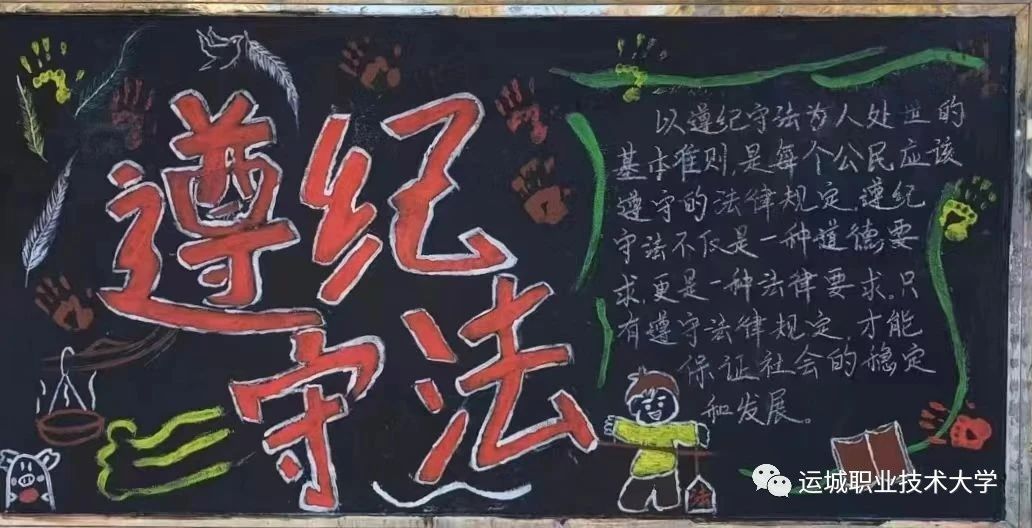 遵纪
守法
以遵纪守法为人处世的
基本准则,是每个公民应该
遵守的法律规定。遵纪
守法不仅是一种道德要
求,更是一种法律要求。只
有遵守法律规定,才能
保证社会的稳定
和发展。
法
运城职业技术大学